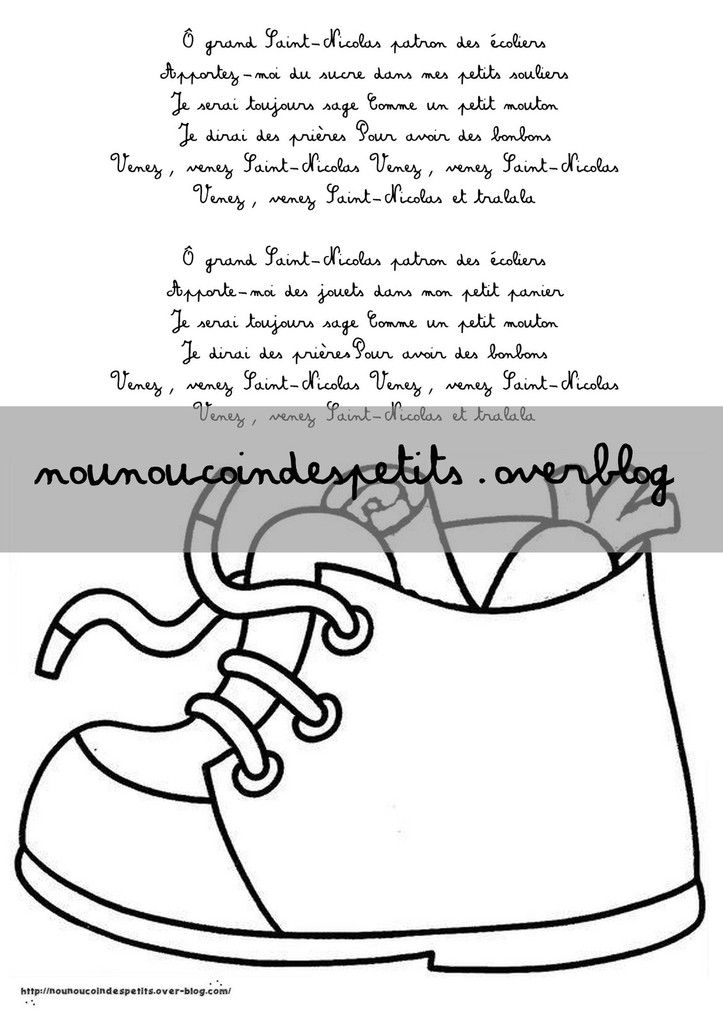 Ô grand Saint-Nicolas patron des écoliers
Apportez-moi du sucre dans mes petits souliers
Je serai toujours sage Comme un petit mouton
Je dirai des prières Pour avoir des bonbons
Venez, venez Saint-Nicolas Venez, venez Saint-Nicolas
Venez, venez Saint-Nicolas et tralala
Ô grand Saint-Nicolas patron des écoliers
Apporte-moi des jouets dans mon petit panier
Je serai toujours sage Comme un petit mouton
Je dirai des prières Pour avoir des bonbons
Venez, venez Saint-Nicolas Venez, venez Saint-Nicolas
Venez, venez Saint-Nicolas et tralala
nounoucoindespetits.overblog
http://nounoucoindespetits.over-blog.com/